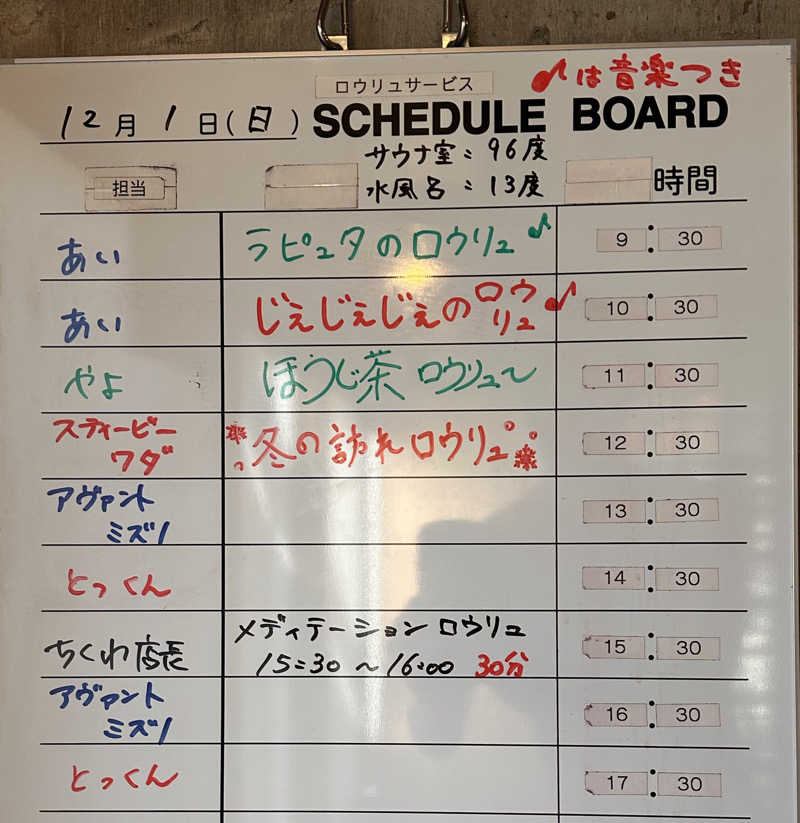 ロウリュサービス
♪は音楽つき
12月 1日(日) SCHEDULE BOARD
サウナ室:96度
水風呂:13度
担当 時間
あい ラピュタのロウリュ♪ 9:30
あい じぇじぇじぇのロウリュ♪ 10:30
やよ ほうじ茶 ロウリュ〜 11:30
スティービー
ワダ 冬の訪れロウリュ 12:30
アヴァント
ミズノ 13:30
とっくん 14:30
ちくわ店長 メディテーション ロウリュ 15:30
15:30 〜 16:00 30分
アヴァント
ミズノ 16:30
とっくん 17:30